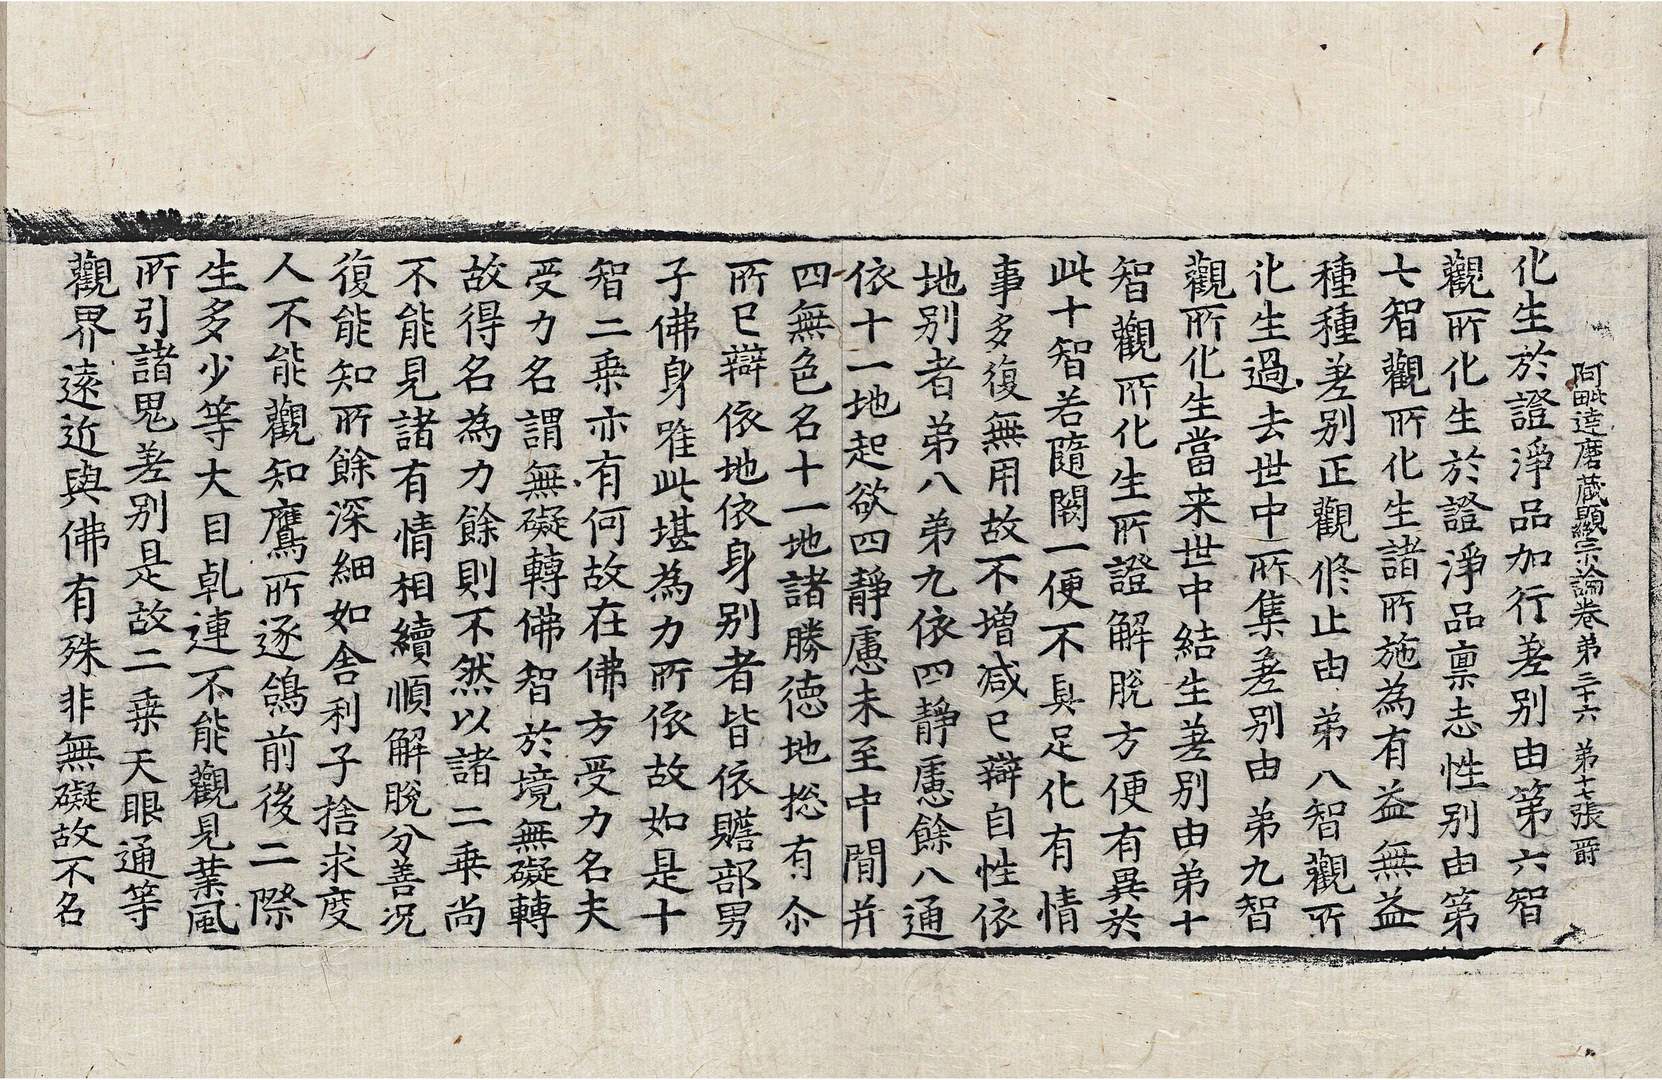 阿毗達磨藏顯宗論卷第三十六 第十七張 爵
化生於證淨品加行差别由第六智
觀所化生於證淨品禀志性别由第
七智觀所化生諸所施為有益無益
種種差别正觀修止由第八智觀所
化生過去世中所集差别由第九智
觀所化生當来世中結生差别由第十
智觀所化生所證解脫方便有異於
此十智若隨闕一便不具足化有情
事多復無用故不增减已辯自性依
地别者第八第九依四靜慮餘八通
依十一地起欲四靜慮未至中間并
四無色名十一地諸勝德地捴有尒
所已辯依地依身别者皆依贍部男
子佛身唯此堪為力所依故如是十
智二乗亦有何故在佛方受力名夫
受力名謂無礙轉佛智於境無礙轉
故得名為力餘則不然以諸二乗尚
不能見諸有情相續順解脫分善况
復能知所餘深細如舍利子捨求度
人不能觀知鷹所逐鴿前後二際
生多少等大目乹連不能觀見業風
所引諸鬼差别是故二乗天眼通等
觀界遠近與佛有殊非無礙故不名